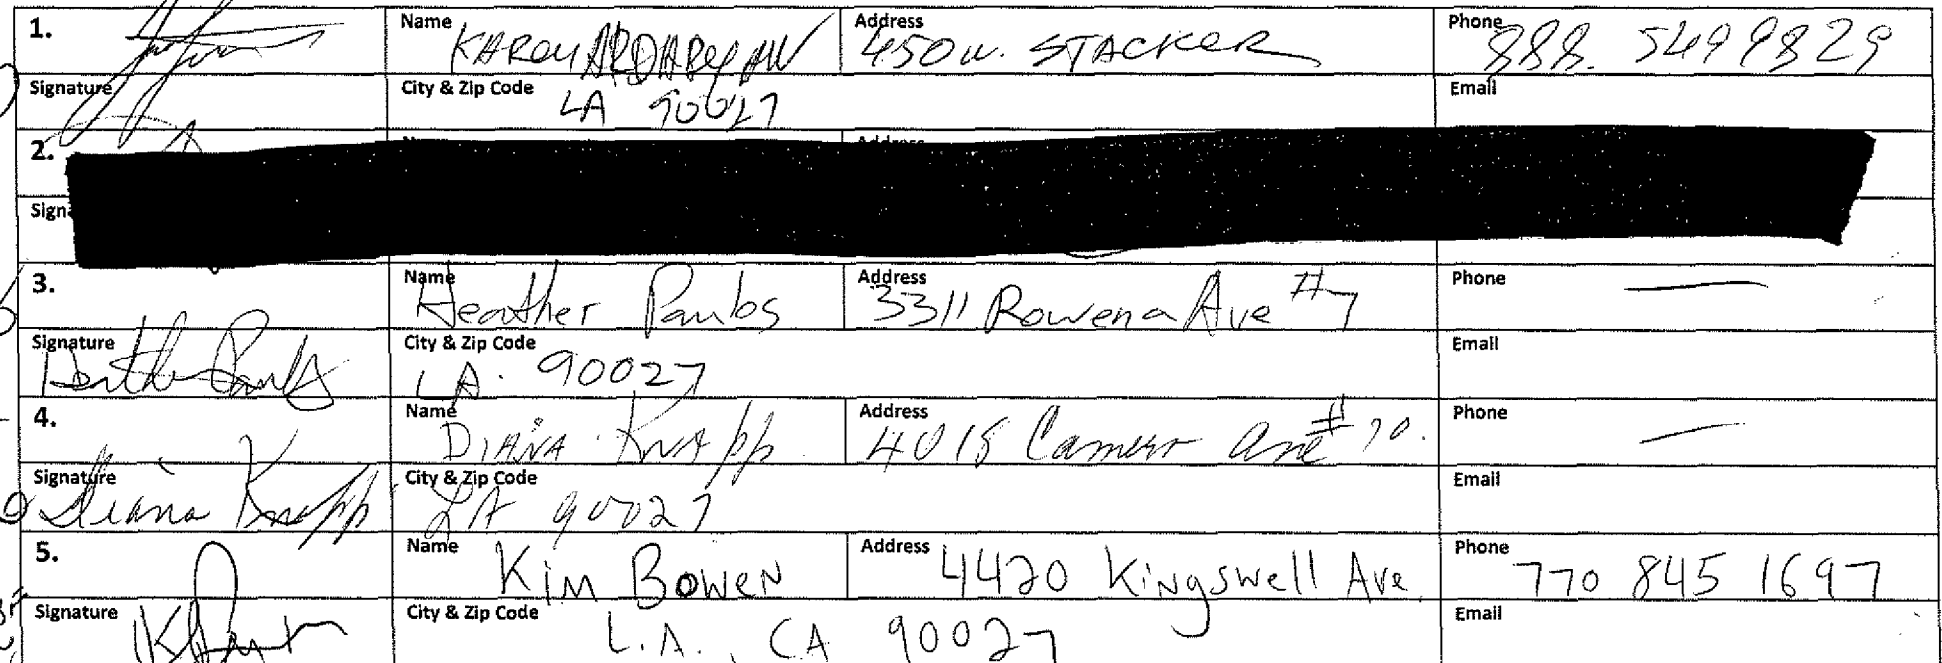 1. Name KAREN ARDARYAN Address 450 W. STACKER Phone 888. 5499829
Signature City & Zip Code LA 90027 Email
2.
3. Name Heather Paulos Address 3311 Rowena Ave #7 Phone —
Signature City & Zip Code LA. 90027 Email
4. Name DIANA KNAPP Address 4018 Ave # Phone —
Signature Diana Knapp City & Zip Code LA 90027 Email
5. Name Kim Bowen Address 4420 Kingswell Ave Phone 770 845 1697
Signature City & Zip Code L.A., CA 90027 Email